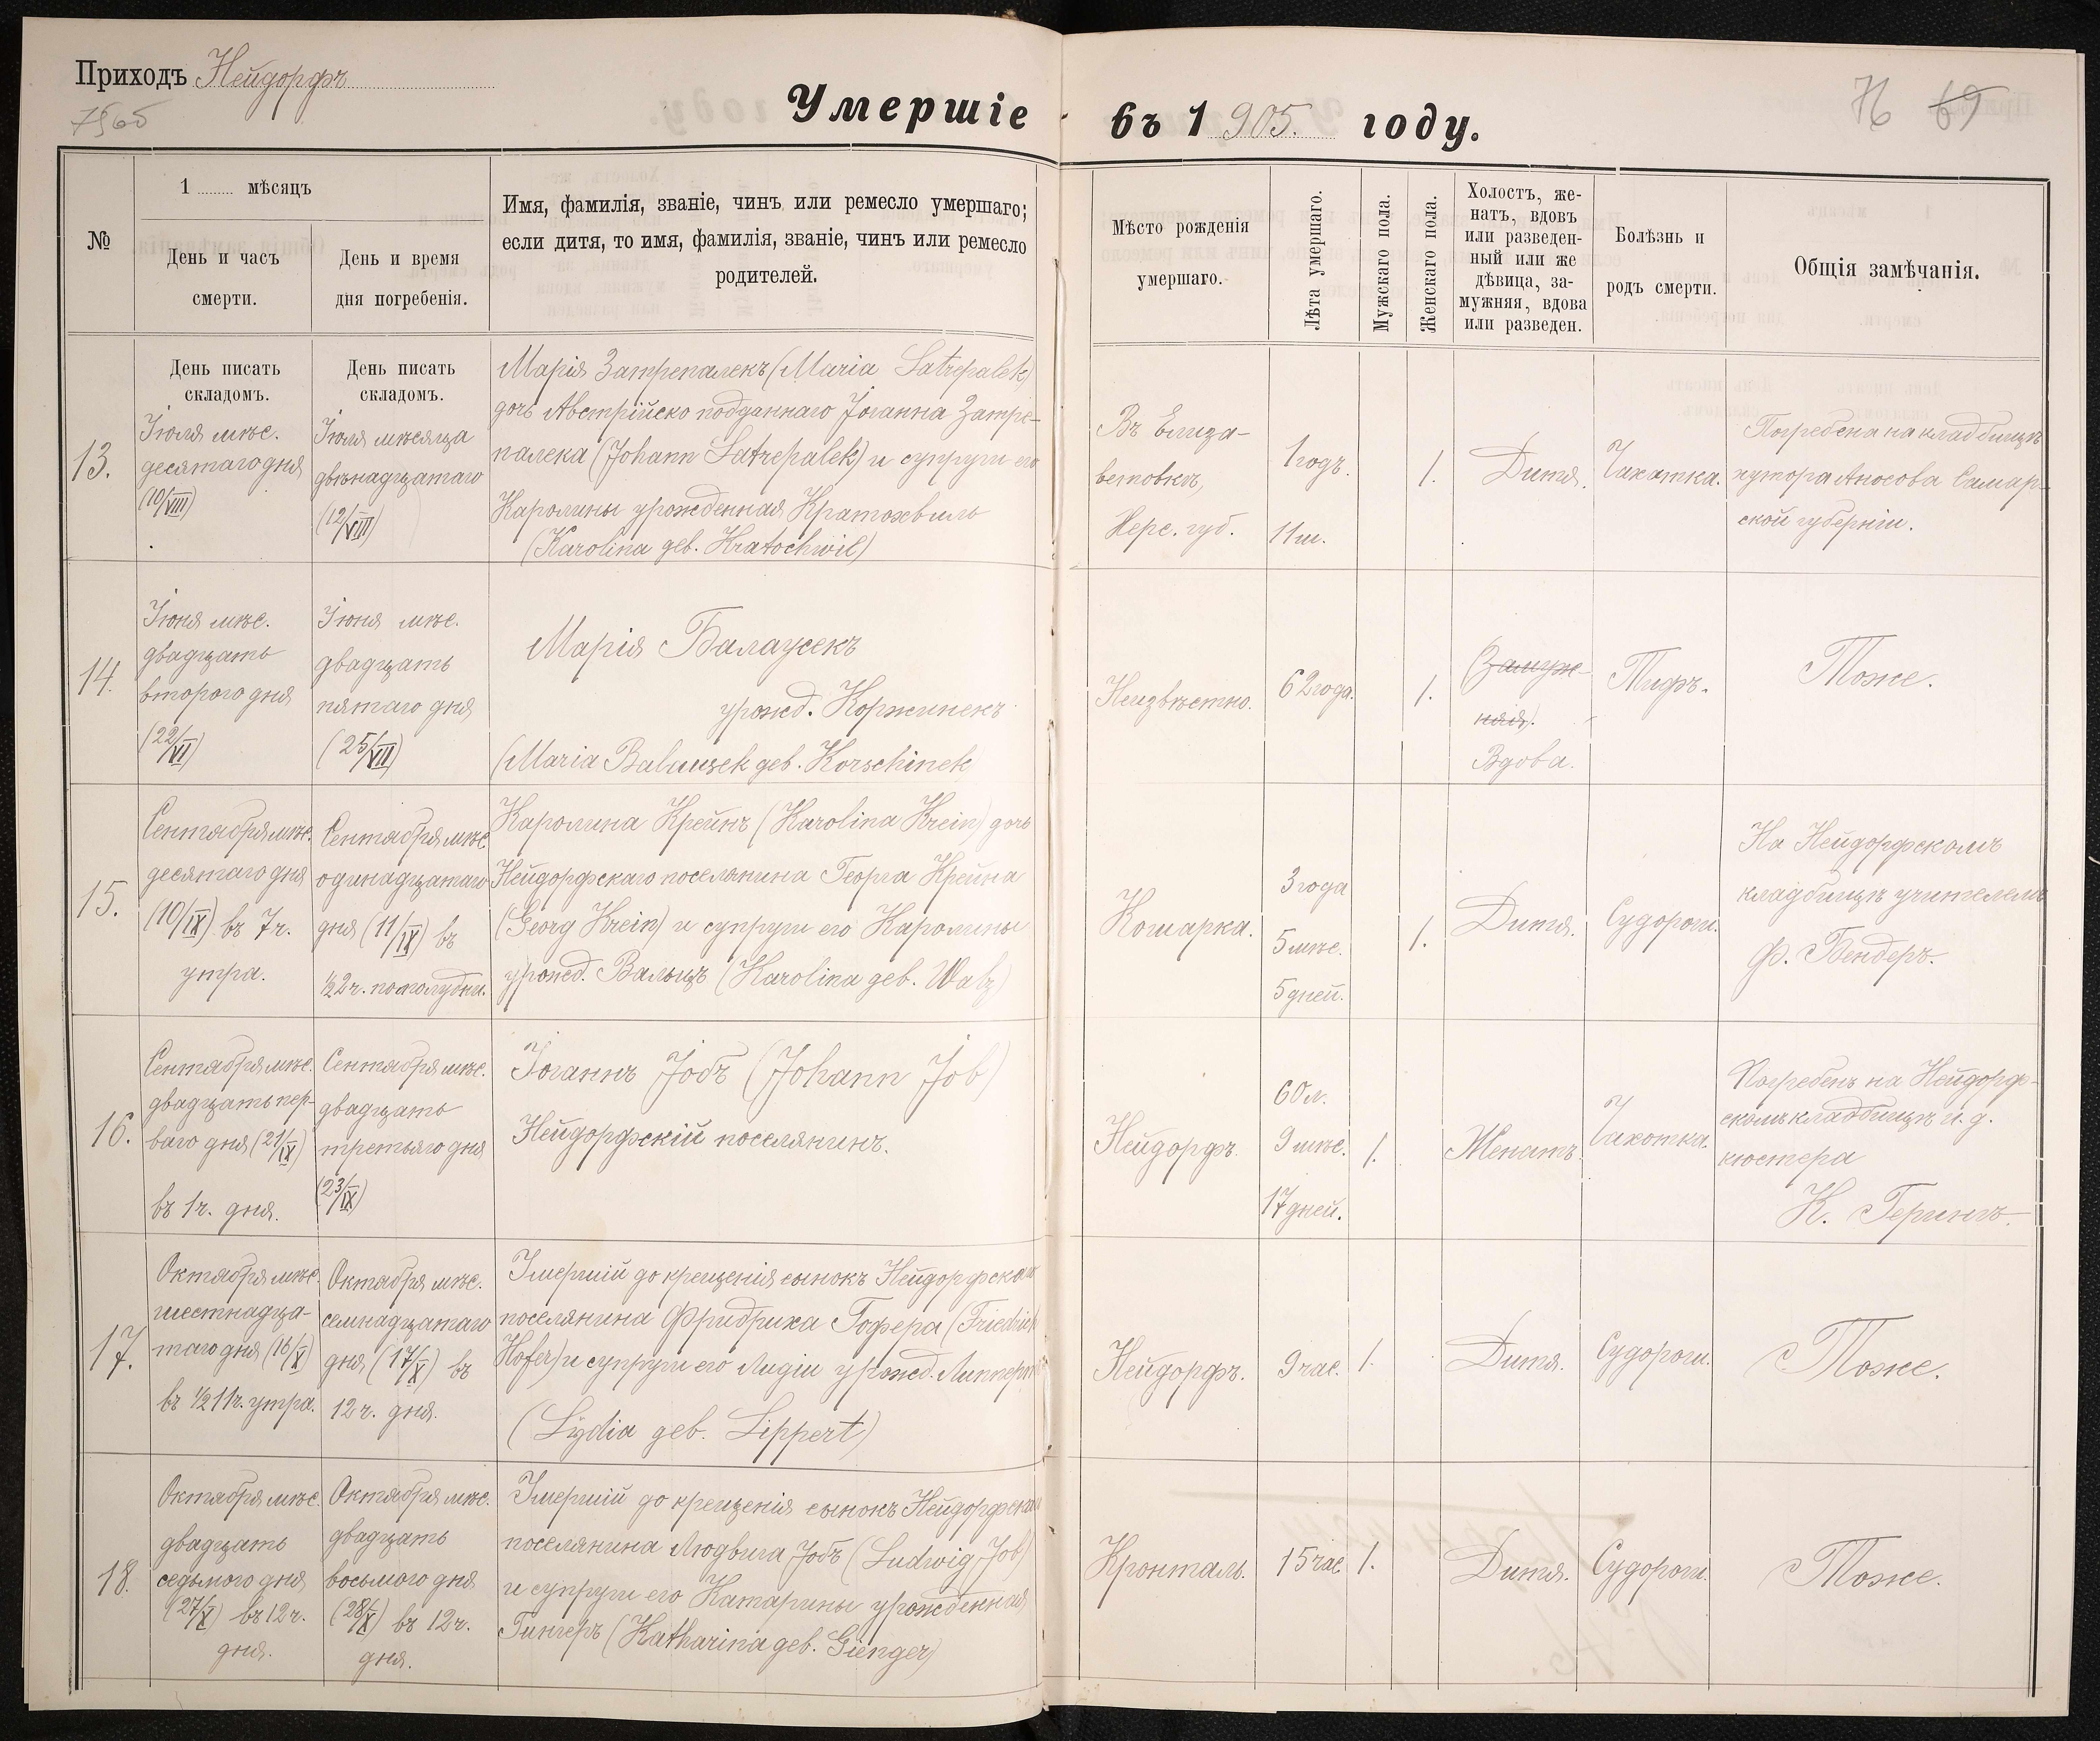 Приходъ Нейдорфъ
75об
Умершіе въ 1905. году.
76 69
№
1 ........ мѣсяцъ
День и часъ
смерти.
День и время
дня погребенія.
Имя, фамилія, званіе, чинъ или ремесло умершаго;
если дитя, то имя, фамилія, званіе, чинъ или ремесло
родителей.
Мѣсто рожденія
умершаго.
Лѣта умершаго.
Мужскаго пола.
Женскаго пола.
Холостъ, же-
натъ, вдовъ
или разведен-
ный или же
дѣвица, за-
мужняя, вдова
или разведен.
Болѣзнь и
родъ смерти.
Общія замѣчанія.
День писать
складомъ.
День писать
складомъ.
13.
Іюля мѣс.
десятаго дня
(10/VIII)
Іюля мѣсяца
двѣнадцатаго
(12/VIII)
Марія Затрепалекъ (Maria Satrepalek)
дочь Австрійско подданнаго Іоганна Затре-
палека (Johann Satrepalek) и супруги его
Каролины урожденная Кратохвиль
(Karolina geb. Kratochwil)
Въ Елиза-
ветовкѣ,
Херс. губ.
1 годъ.
11 м.
1.
Дитя.
Чахотка.
Погребена на кладбищѣ
хутора Аносова Самар-
ской губерніи.
14.
Іюня мѣс.
двадцать
второго дня
(22/VI)
Іюня мѣс.
двадцать
пятаго дня
(25/VII)
Марія Балаусекъ
урожд. Коржинекъ
(Maria Balausek geb. Korschinek
Неизвѣстно.
62 года.
1.
(Замуж-
няя).
Вдова.
Тифъ.
Тоже.
15.
Сентября мѣс.
десятаго дня
(10/IX) въ 7 ч.
утра.
Сентября мѣс.
одинадцатаго
дня (11/IX) въ
½2 ч. пополудни.
Каролина Крейнъ (Karolina Krein) дочь
Нейдорфскаго поселянина Георга Крейна
(Georg Krein) и супруги его Каролины
урожд. Вальцъ (Karolina geb. Walz)
Кошарка.
3 года
5 мѣс.
5 дней.
1.
Дитя.
Судороги.
На Нейдорфскомъ
кладбищѣ учителемъ
Ф. Бендеръ.
16.
Сентября мѣс.
двадцать пер-
ваго дня (21/IX)
въ 1 ч. дня.
Сентября мѣс.
двадцать
третьяго дня
(23/IX)
Іоганнъ Іобъ (Johann Job)
Нейдорфскій поселянинъ.
Нейдорфъ.
60 л.
9 мѣс.
17 дней.
1.
Женатъ.
Чахотка.
Погребенъ на Нейдорф-
скомъ кладбищѣ и. д.
кюстера
К. Герингъ.
17.
Октября мѣс.
шестнадца-
таго дня (16/X)
въ ½11 ч. утра.
Октября мѣс.
семнадцатаго
дня (17/X) въ
12 ч. дня.
Умершій до крещенія сынокъ Нейдорфскаго
поселянина Фридриха Гофера (Friedrich
Hofer) и супруги его Лидіи урожд. Липпертъ
(Lydia geb. Lippert)
Нейдорфъ.
9 час.
1.
Дитя.
Судороги.
Тоже.
18.
Октября мѣс.
двадцать
седьмого дня
(27/X) въ 12 ч.
дня.
Октября мѣс.
двадцать
восьмого дня
(28/X) въ 12 ч.
дня.
Умершій до крещенія сынокъ Нейдорфскаго
поселянина Людвига Іобъ (Ludwig Job)
и супруги его Катарины урожденная
Гингеръ (Katharina geb. Gienger)
Кронталь.
15 час.
1.
Дитя.
Судороги.
Тоже.